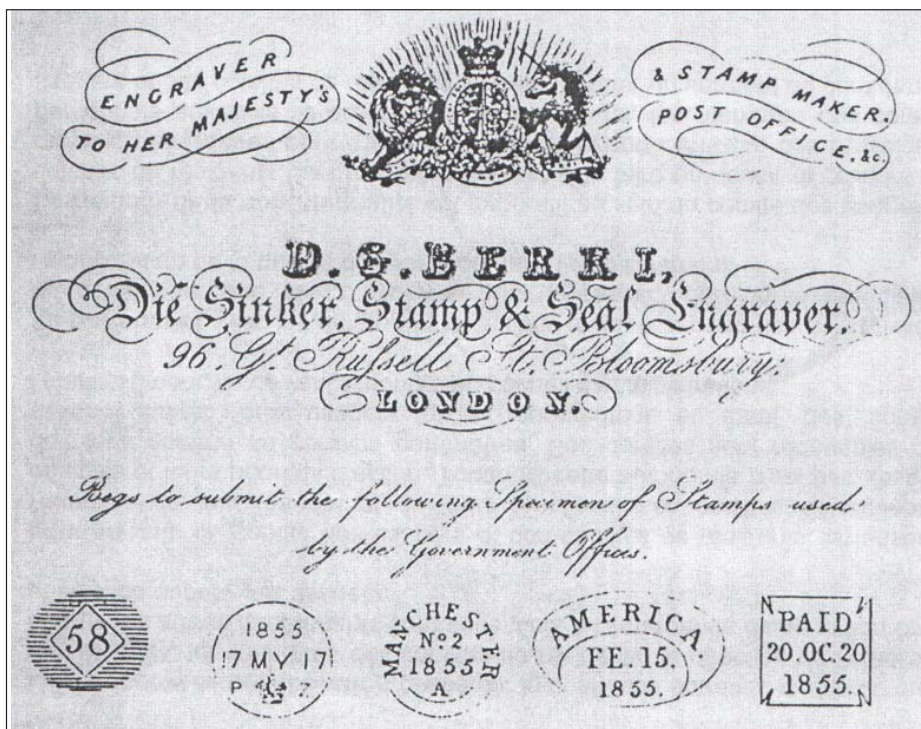 ENGRAVER
TO HER MAJESTY'S
& STAMP MAKER
POST OFFICE, &c.
D. G. BERRI,
Die Sinker, Stamp & Seal Engraver.
96. Gt. Russell St. Bloomsbury.
LONDON.
Begs to submit the following Specimen of Stamps used
by the Government Offices.
58
1855
17 MY 17
P Z
MANCHESTER
No 2
1855
A
AMERICA
FE. 15.
1855.
PAID
20. OC. 20
1855.